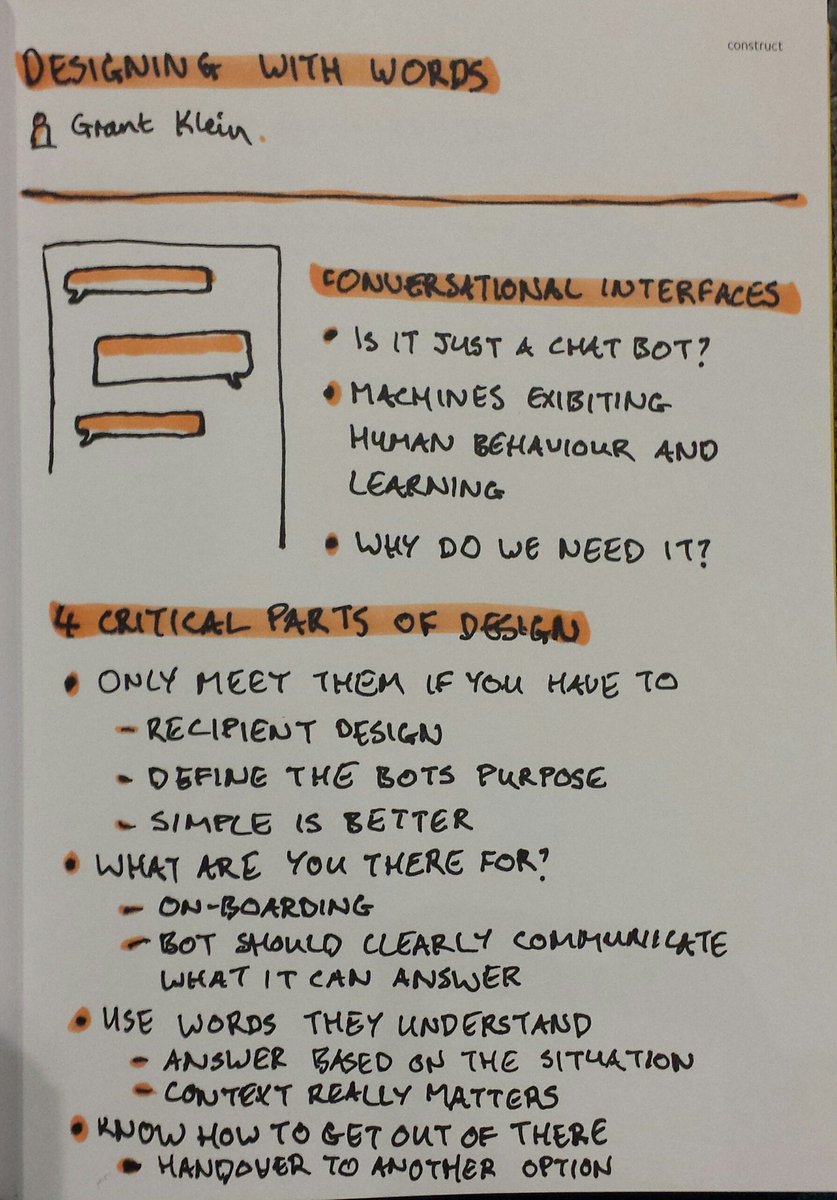 construct
DESIGNING WITH WORDS
Grant Klein.
CONVERSATIONAL INTERFACES
• IS IT JUST A CHAT BOT?
• MACHINES EXIBITING
HUMAN BEHAVIOUR AND
LEARNING
• WHY DO WE NEED IT?
4 CRITICAL PARTS OF DESIGN
• ONLY MEET THEM IF YOU HAVE TO
- RECIPIENT DESIGN
- DEFINE THE BOTS PURPOSE
- SIMPLE IS BETTER
• WHAT ARE YOU THERE FOR?
- ON-BOARDING
- BOT SHOULD CLEARLY COMMUNICATE
WHAT IT CAN ANSWER
• USE WORDS THEY UNDERSTAND
- ANSWER BASED ON THE SITUATION
- CONTEXT REALLY MATTERS
• KNOW HOW TO GET OUT OF THERE
- HANDOVER TO ANOTHER OPTION